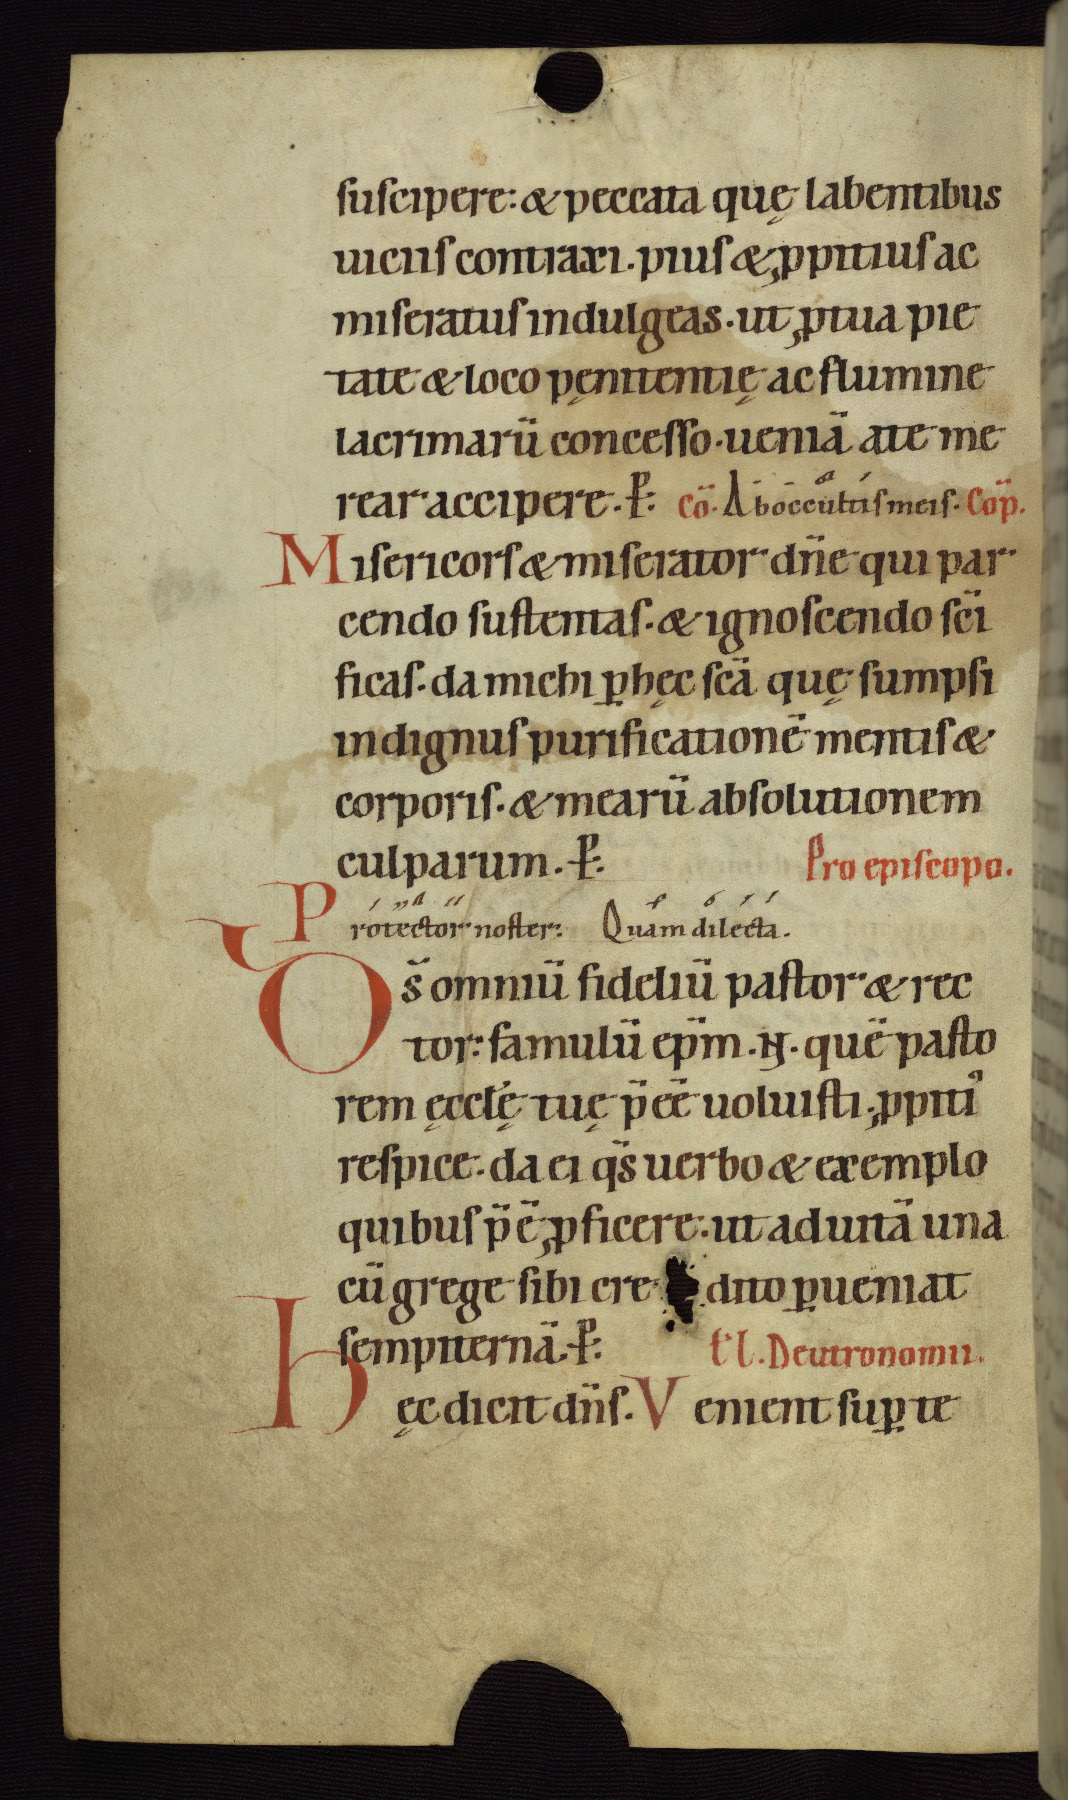 suscipere: & peccata quę labentibus
uiciis contraxi. pius & ꝓpitius ac
miseratus indulgeas. ut ꝓ tua pie
tate & loco pęnitentię ac flumine
lacrimarū concesso. ueniā a te me
rear accipere. P̵: Cō. Ab occultis meis. Cōp.
Misericors & miserator dn̄e qui par
cendo sustentas. & ignoscendo sc̄i
ficas. da michi ꝑ hęc sc̄a quę sumpsi
indignus purificationē mentis &
corporis. & mearū absolutionem
culparum. P̵: Pro episcopo.
Protector noster: Quam dilecta.
Ds̄ omniū fideliū pastor & rec
tor: famulū ep̄m .N. quē pasto
rem ęccłę tuę p̄eē uoluisti. ꝓpitiꝰ
respice. da ei qs̄ uerbo & exemplo
quibus p̄ē ꝓficere. ut ad uitā una
cū grege sibi cre dito ꝑueniat
sempiternā. P̵: t'l. Deutronomii.
Hęc dicit dn̄s. Venient suꝑ te